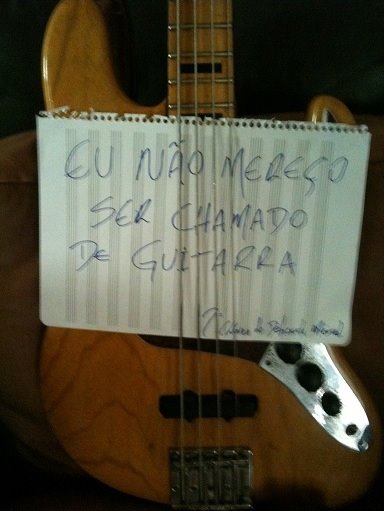 EU NÃO MEREÇO
SER CHAMADO
DE GUITARRA
de